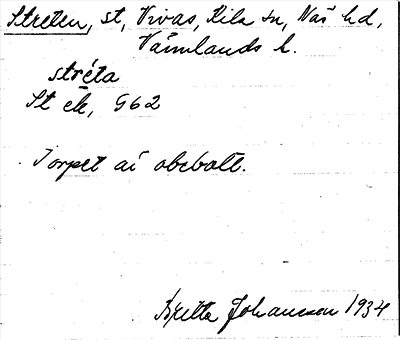 Streten, st, Vivas, Kila sn, Näs hd,
Värmlands l.
stréta
St ek, 962
Torpet är obebott.
Britta Johansson 1934